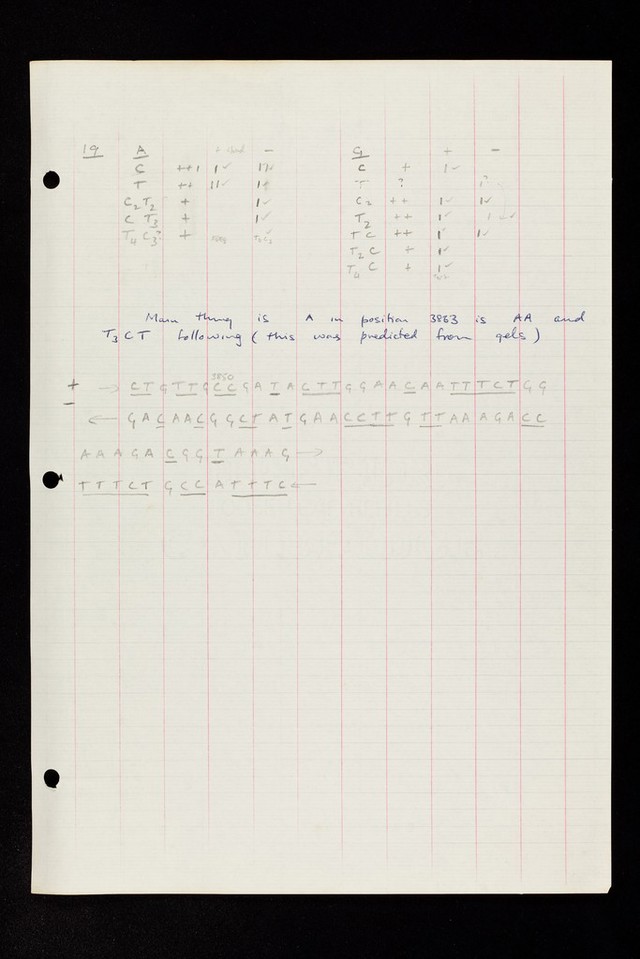 19 A + - G + -
C ++1 1✓ 11✓ C + 1✓
T ++ 11✓ 1+ T ? 1?
C2T2 + 1✓ C2 ++ 1✓ 1✓
C T3 + 1✓ T2 ++ 1✓ 1 ✓
T4 C3? + TC ++ 1✓ 1✓
T2C + 1✓
T4 C + 1✓
Main thing is A in position 3863 is AA and
T3CT following (this was predicted from gels)
3850
+ → CTGTTGCCGATACTTGGAACAATTTCTGG
- ← GACAACGGCTATGAACCTTGTTAAAGACC
AAAGACGGTAAAG →
TTTCTGCCATTTC ←